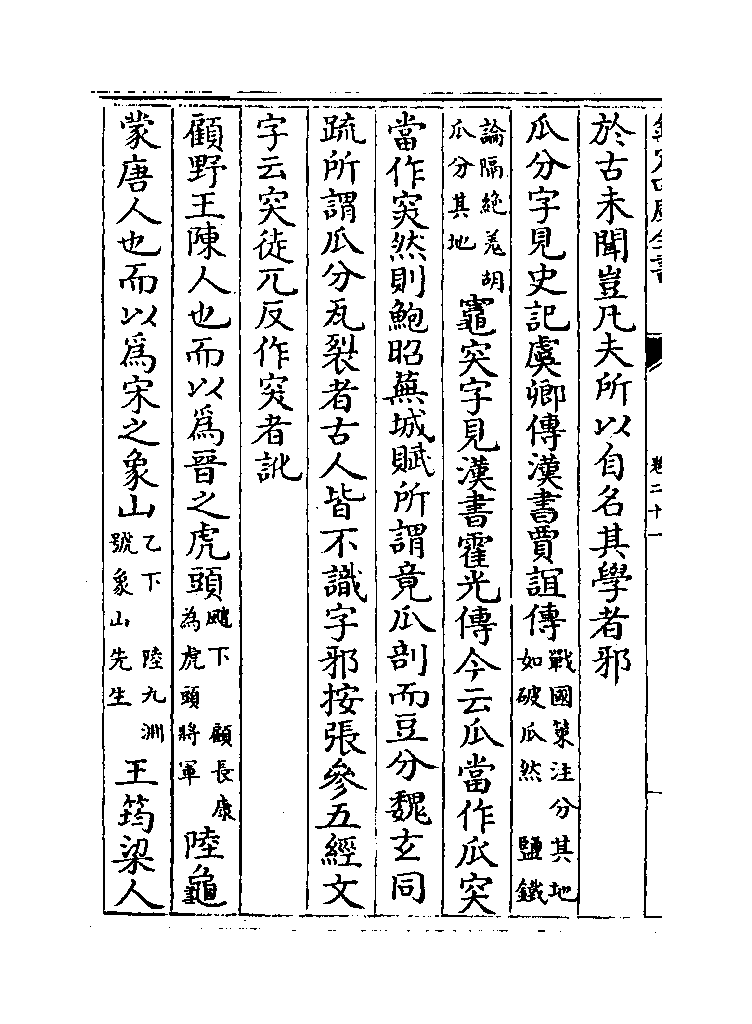 欽定四庫全書
卷二十一
於古未聞豈凡夫所以自名其學者邪
瓜分字見史記虞卿傳漢書賈誼傳戰國策注分其地如破瓜然　鹽鐵
論隔絶羌胡瓜分其地竈突字見漢書霍光傳今云瓜當作㼌突
當作穾然則鮑昭蕪城賦所謂竟瓜剖而豆分魏玄同
疏所謂瓜分瓦裂者古人皆不識字邪按張參五經文
字云突徒兀反作穾者訛
顧野王陳人也而以為晉之虎頭䫻下　顧長康為虎頭將軍陸龜
蒙唐人也而以為宋之象山乙下　陸九淵號象山先生王筠梁人